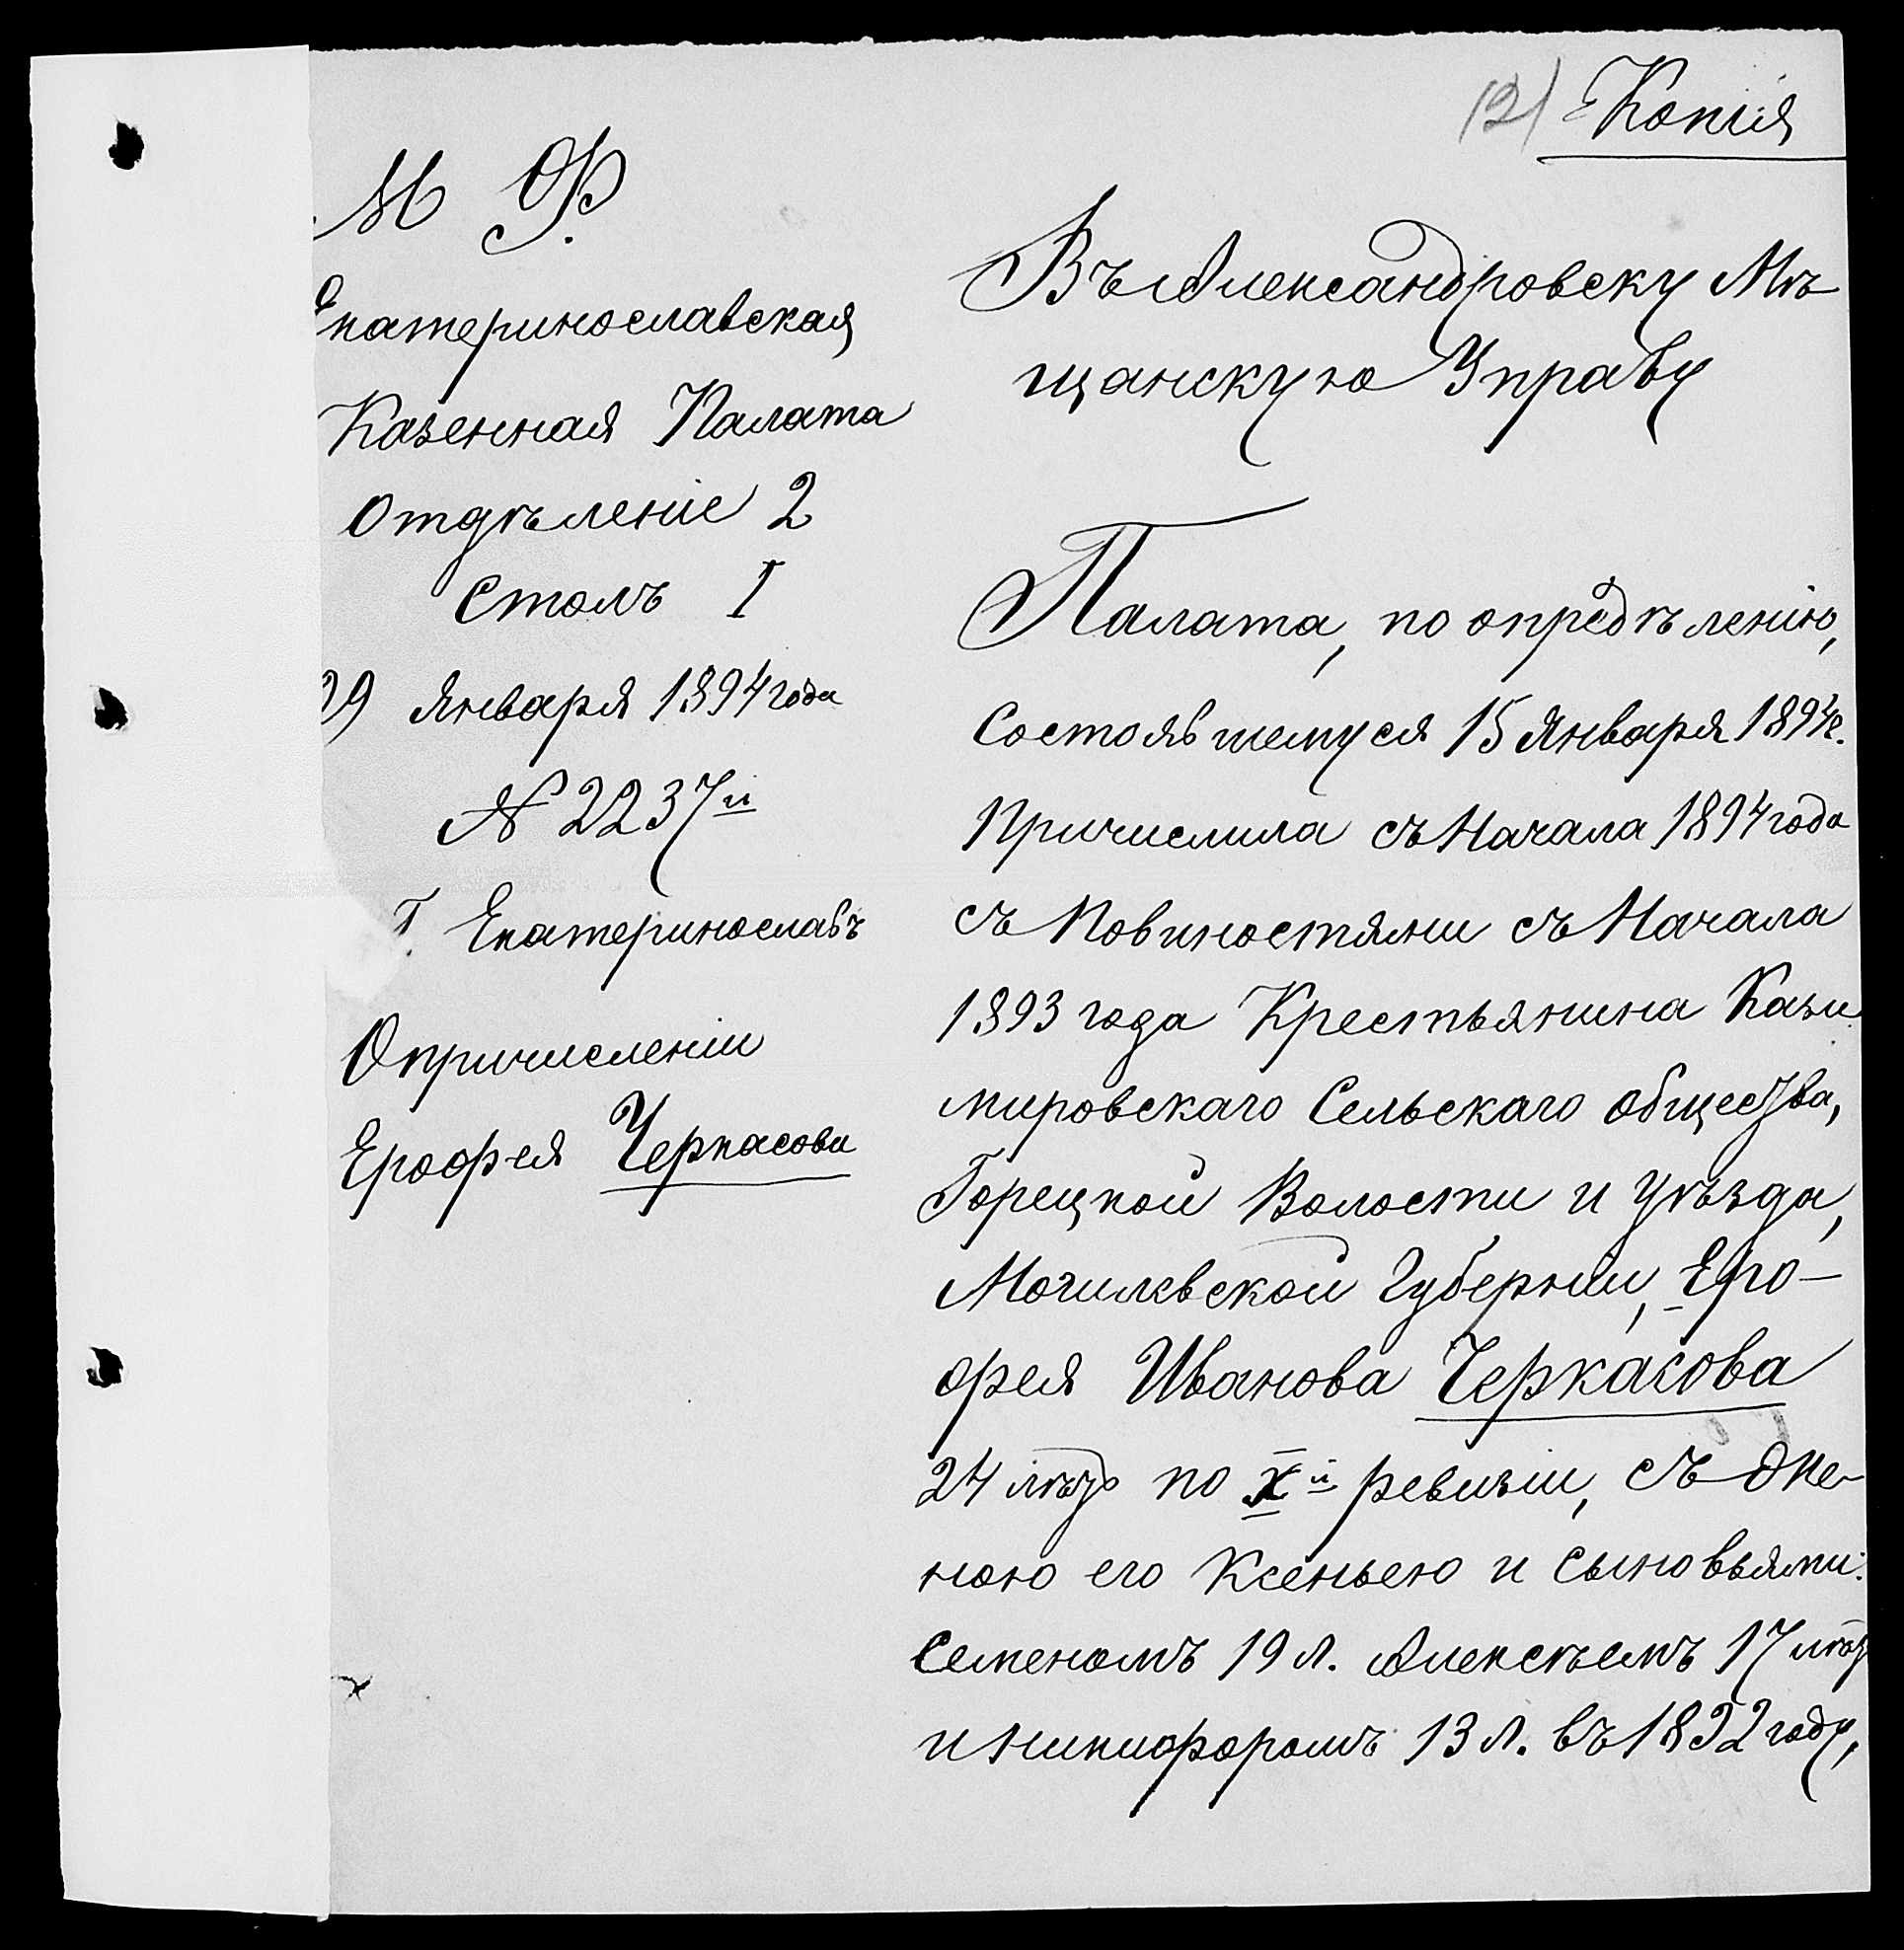 (2) Копія
М Ф.
Екатеринославская
Казенная Палата
Отдѣленіе 2
Столъ I
29 Января 1894 года
№ 2237й
Г. Екатеринославъ
О причисленіи
Ерофея Черкасова
Въ Александровску Мѣ
щанскую Управу
Палата, по опредѣленію,
Состоявшемуся 15 Января 1894 г.
Причислила съ Начала 1894 года
съ Повиностями съ Начала
1893 года Крестьянина Кази
мировскаго Сельскаго общества,
Горецкой Волости и уѣзда,
Могилевской Губерніи, Еро-
фея Иванова Черкасова
24 лѣтъ по Xй ревизіи, съ Же
ною его Ксеньею и сыновьями:
Семеномъ 19 л. Алексѣемъ 17 лѣтъ
и Никифоромъ 13 л. въ 1892 году,